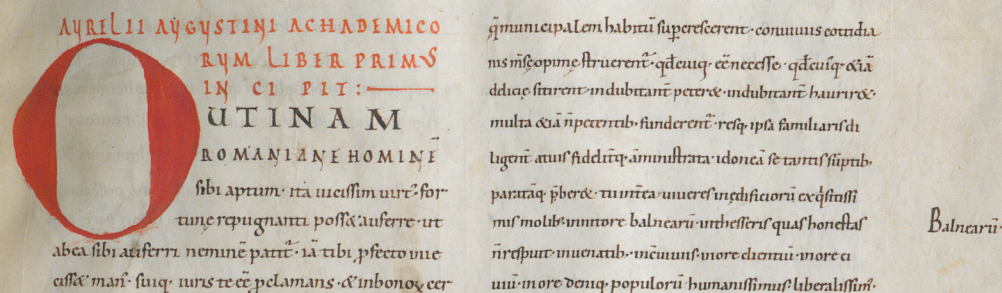 AURELII AUGUSTINI ACHADEMICO
RUM LIBER PRIMUS
INCIPIT:
O UTINAM
ROMANIANE HOMINĒ
sibi aptum · ita uicissim uirt᷒ · for
tunę repugnanti poss& auferre · ut
abea sibi auferri neminē patit᷒ · iā tibi ꝓfecto inie
ciss& manū · suiq· iuris te eē ꝓclamans · & inbonoꝝ cer
q̄ municipalem habitū supercrescerent · conuiuiis cottidia
nis m̄sę opimę struerent᷒ · qđ cuiq· eē necesse · qđ cuiq· &iā
ddicię sitirent · indubitant᷒ peter& · indubitant᷒ haurir& ·
multa &iā n̄ petentib· funderent᷒ · resq· ipsa familiaris di
ligent᷒ atuis fidelit᷒q· amministrata · idoneā se tantis sūptib·
paratāq· p̄ber& · tu int̄ea uiueres inędificiorū exq̇sitissi
mis molib· innitore balnearū · inthesseris quas honestas
n̄ respuit · inuenatib· · inc̄uiuiis · in ore clientiū · in ore ci
uiū · in ore deniq· populorū humanissimus · liberalissim᷒ ·
Balnearū ·